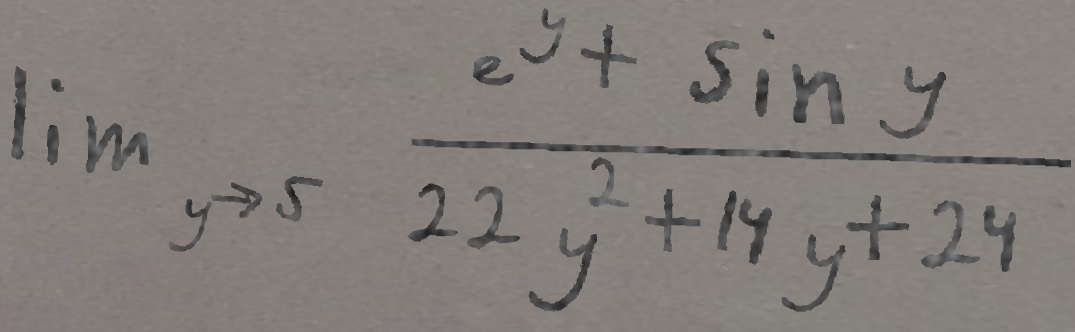 lim y→5 (e^y + sin y) / (22y^2 + 14y + 24)